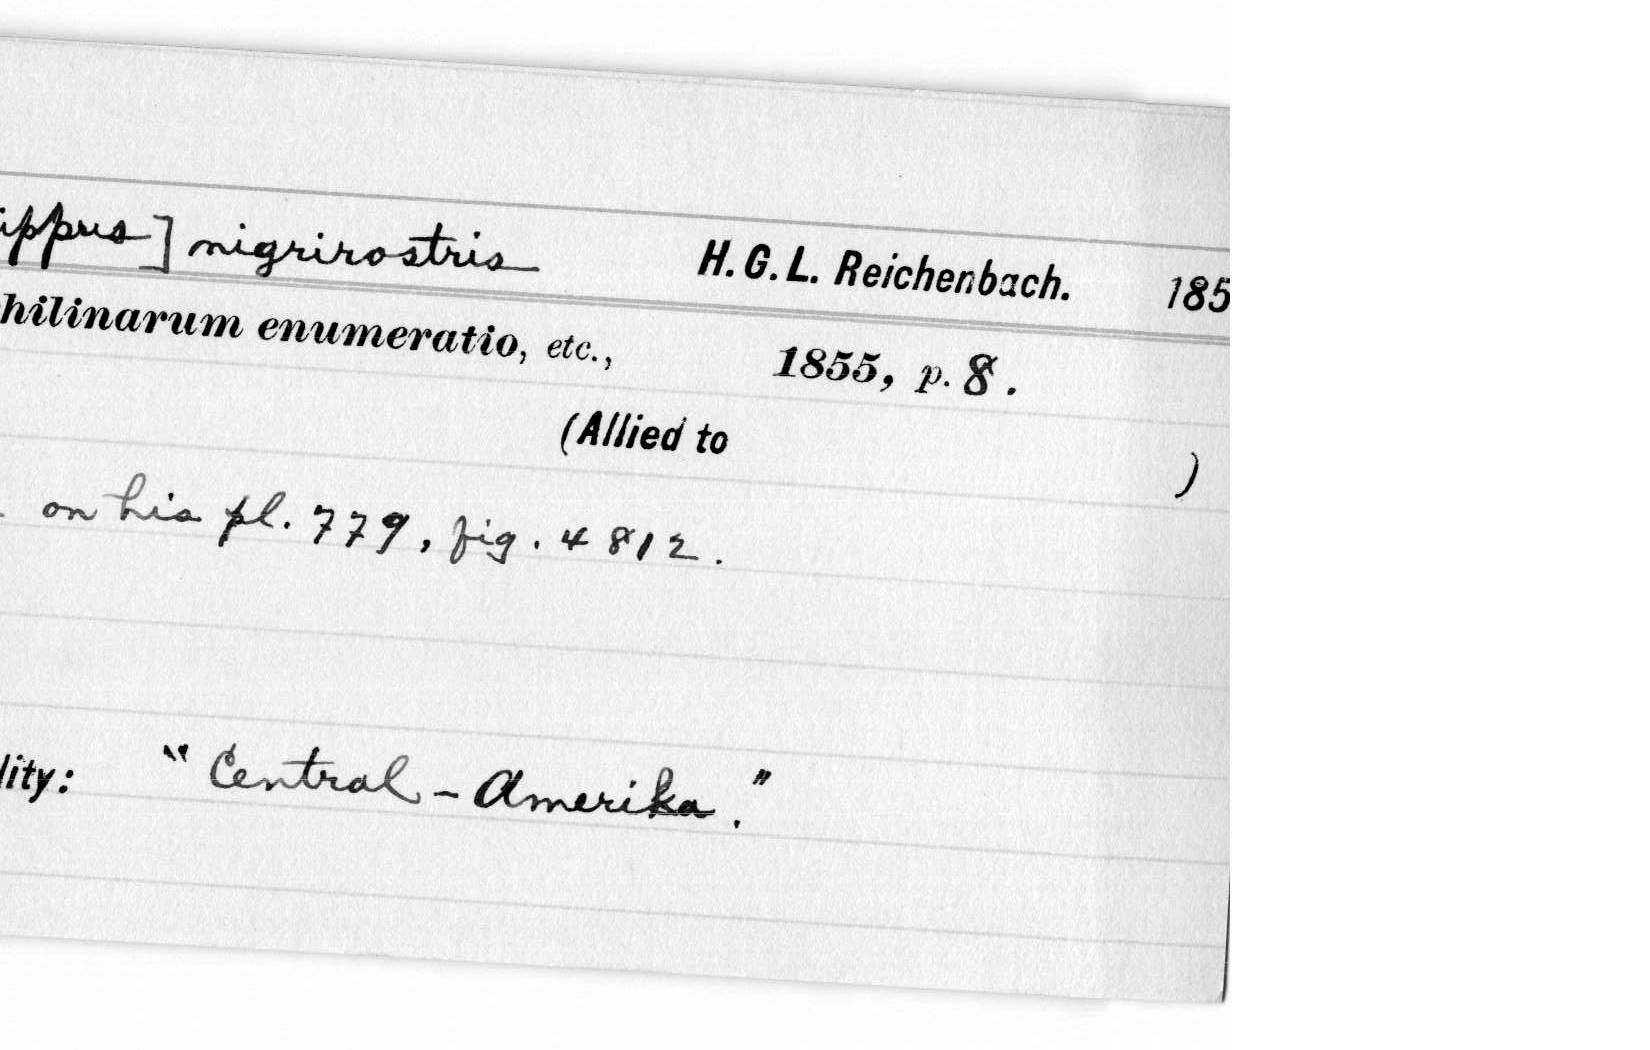 ippus] nigrirostris H. G. L. Reichenbach. 185
hilinarum enumeratio, etc., 1855, p. 8.
(Allied to )
on his pl. 779, fig. 4812.
lity: "Central-Amerika."